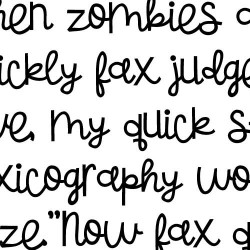 hen zombies a
ickly fax judge
ve, my quick s
xicography wo
ze." Now fax q